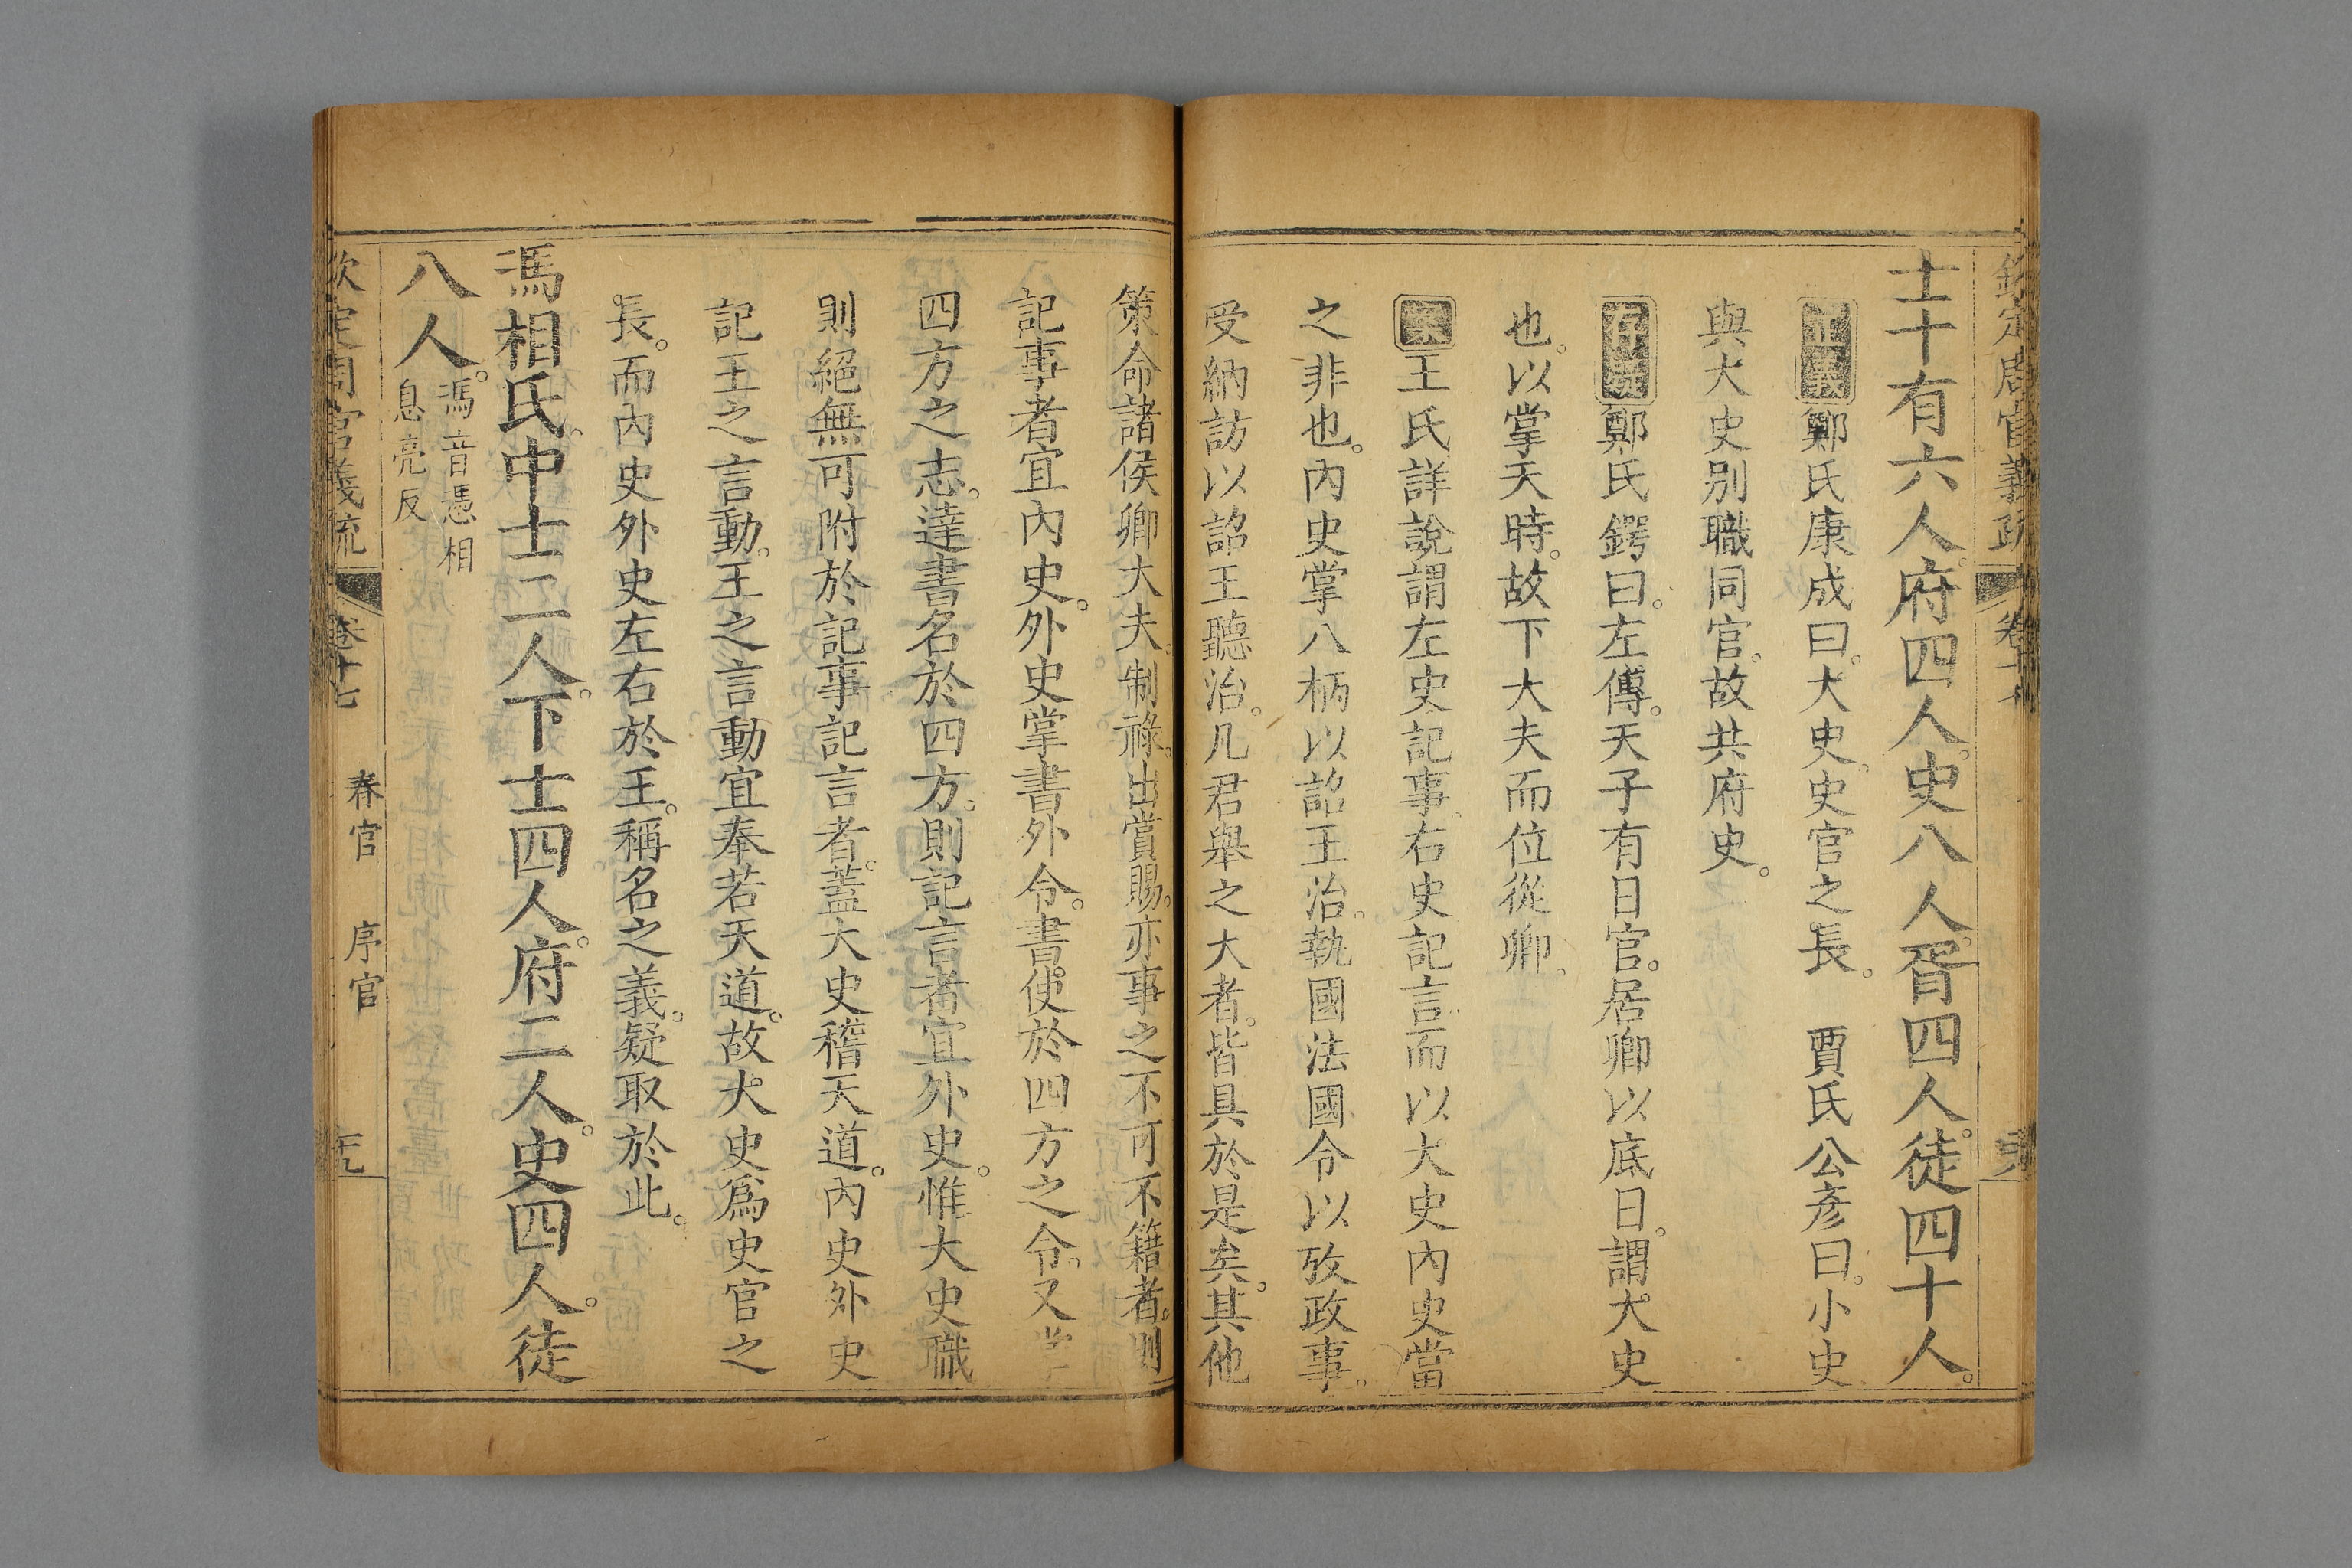 欽定周官義疏 卷十七
士十有六人。府四人。史八人。胥四人。徒四十人。
正義鄭氏康成曰。大史。史官之長。 賈氏公彥曰。小史
與大史別職同官。故共府史。
存疑鄭氏鍔曰。左傳。天子有日官。居卿以底日。謂大史
也。以掌天時。故下大夫而位從卿。
案王氏詳說謂左史記事。右史記言。而以大史內史當
之非也。內史掌八柄以詔王治。執國法國令以攷政事。
受納訪以詔王聽治。凡君舉之大者。皆具於是矣。其他
策命諸侯卿大夫。制祿。出賞賜。亦事之不可不籍者。則
記事者宜內史。外史掌書外令。書使於四方之令。又掌
四方之志。達書名於四方。則記言者宜外史。惟大史職
則絕無可附於記事記言者。蓋大史稽天道。內史外史
記王之言動。王之言動宜奉若天道。故大史爲史官之
長。而內史外史左右於王。稱名之義。疑取於此。
馮相氏。中士二人。下士四人。府二人。史四人。徒
八人。馮音憑相
息亮反
欽定周官義疏 卷十七 春官 序官